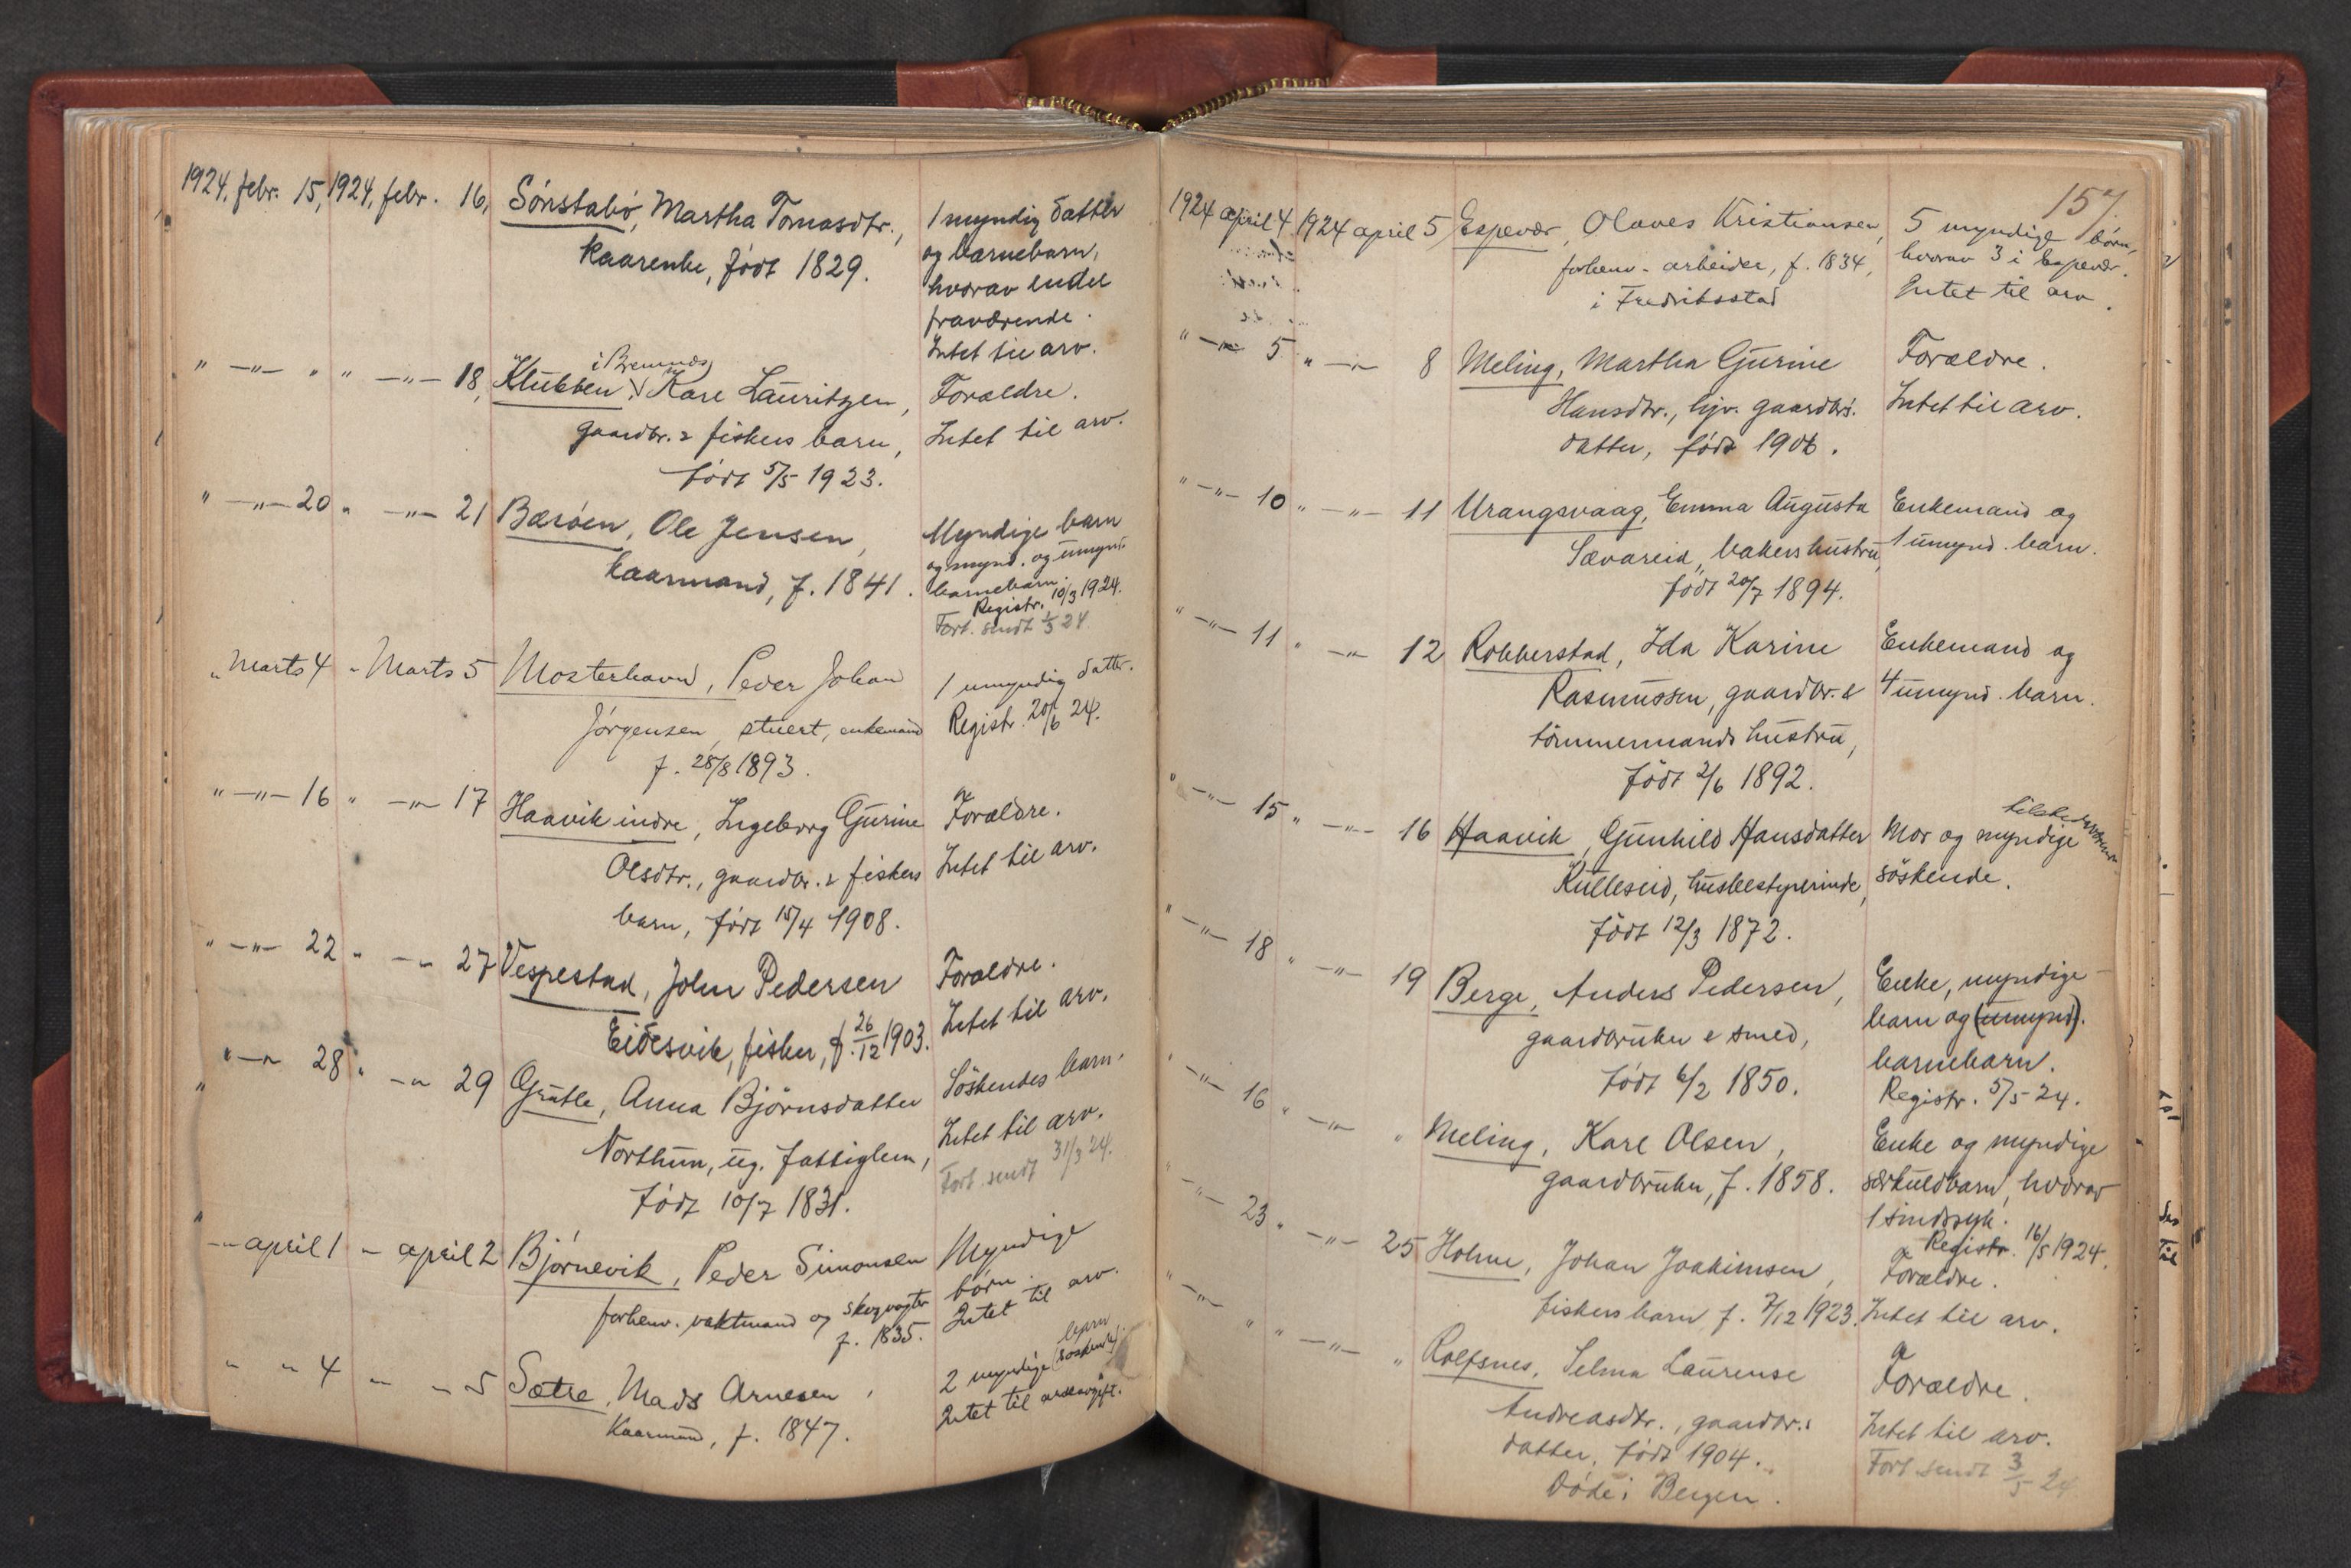 1924. febr. 15, 1924, febr. 16, Sönstabö, Martha Tomasdtr., 1 myndig datter
kaarenke, født 1829. og barnebarn,
hvorav endel
fraværende.
Intet til arv.
" —"— " " —"— 18, Klubben i Bremnes, Kare Lauritzen, Forældre.
gaardbr. & fiskers barn, Intet til arv.
født 5/5 1923.
" —"— 20 " —"— 21 Bærøen, Ole Jensen, Myndige barn
kaarmand, f. 1841. og mynd. og umynd.
barnebarn.
Registr. 10/3 1924.
Fort. sendt 1/3 24.
" Marts 4 " Marts 5 Mosterhavn, Peder Johan 1 umyndig datter.
Jörgensen, stuert, enkemand Registr. 20/6 24.
f. 28/8 1893.
" —"— 16 " —"— 17 Haavik indre, Ingeborg Gurine Forældre.
Olsdtr., gaardbr. & fiskers Intet til arv.
barn, født 15/4 1908.
" —"— 22 " —"— 27 Vespestad, John Pedersen Forældre.
Eidesvik, fisker, f. 26/12 1903. Intet til arv.
" —"— 28 " —"— 29 Grutle, Anna Björnsdatter Söskendes barn.
Northun, ug. fattiglem, Intet til arv.
født 10/7 1831. Fort. sendt 31/3 24.
" april 1 " april 2 Bjørnevik, Peder Simonsen Myndige
forhenv. vaktmand og skogvogter børn.
f. 1835. Intet til arv.
" " 4 " " 5 Sætre, Mads Arnesen, 2 myndige söskende
Kaarmand, f. 1847. Intet til arveavgift.
157.
1924 april 4 1924 april 5 Espevær, Olaves Kristiansen, 5 myndige börn,
forhenv. arbeider, f. 1834, hvorav 3 i Espevær.
i Fredriksstad Intet til arv.
" —"— 5 " —"— 8 Meling, Martha Gurine Forældre.
Hansdtr., hjv. gaardbr's. Intet til arv.
datter, født 1906.
" —"— 10 " —"— 11 Urangsvaag, Emma Augusta Enkemand og
Sævareid, bakers hustru, 1 umynd. barn.
født 20/7 1894.
" —"— 11 " —"— 12 Robberstad, Ida Karine Enkemand og
Rasmussen, gaardbr. & 4 umynd. barn.
tömmermands hustru,
født 2/6 1892.
" —"— 15 " —"— 16 Haavik, Gunhild Hansdatter Mor og myndige tilstedeværende
Kulleseid, husbestyrerinde, söskende.
født 12/3 1872.
" —"— 18 " —"— 19 Berge, Anders Pedersen, Enke, myndige
gaardbruker & smed, barn og (umynd).
født 6/2 1850. barnebarn.
Registr. 5/5 24.
" —"— 16 " —"— " Meling, Karl Olsen, Enke og myndige
gaardbruker, f. 1858. særkuldbarn, hvorav
1 sindssyk.
Registr. 16/5 1924.
" —"— 23 " —"— 25 Holme, Johan Joakimsen, Forældre.
fiskers barn f. 7/12 1923. Intet til arv.
" —"— " " —"— " Rolfsnes, Selma Laurense Forældre.
Andreasdtr., gaardbr.s Intet til arv.
datter, født 1904. Fort. sendt 3/5 24
Døde i Bergen.